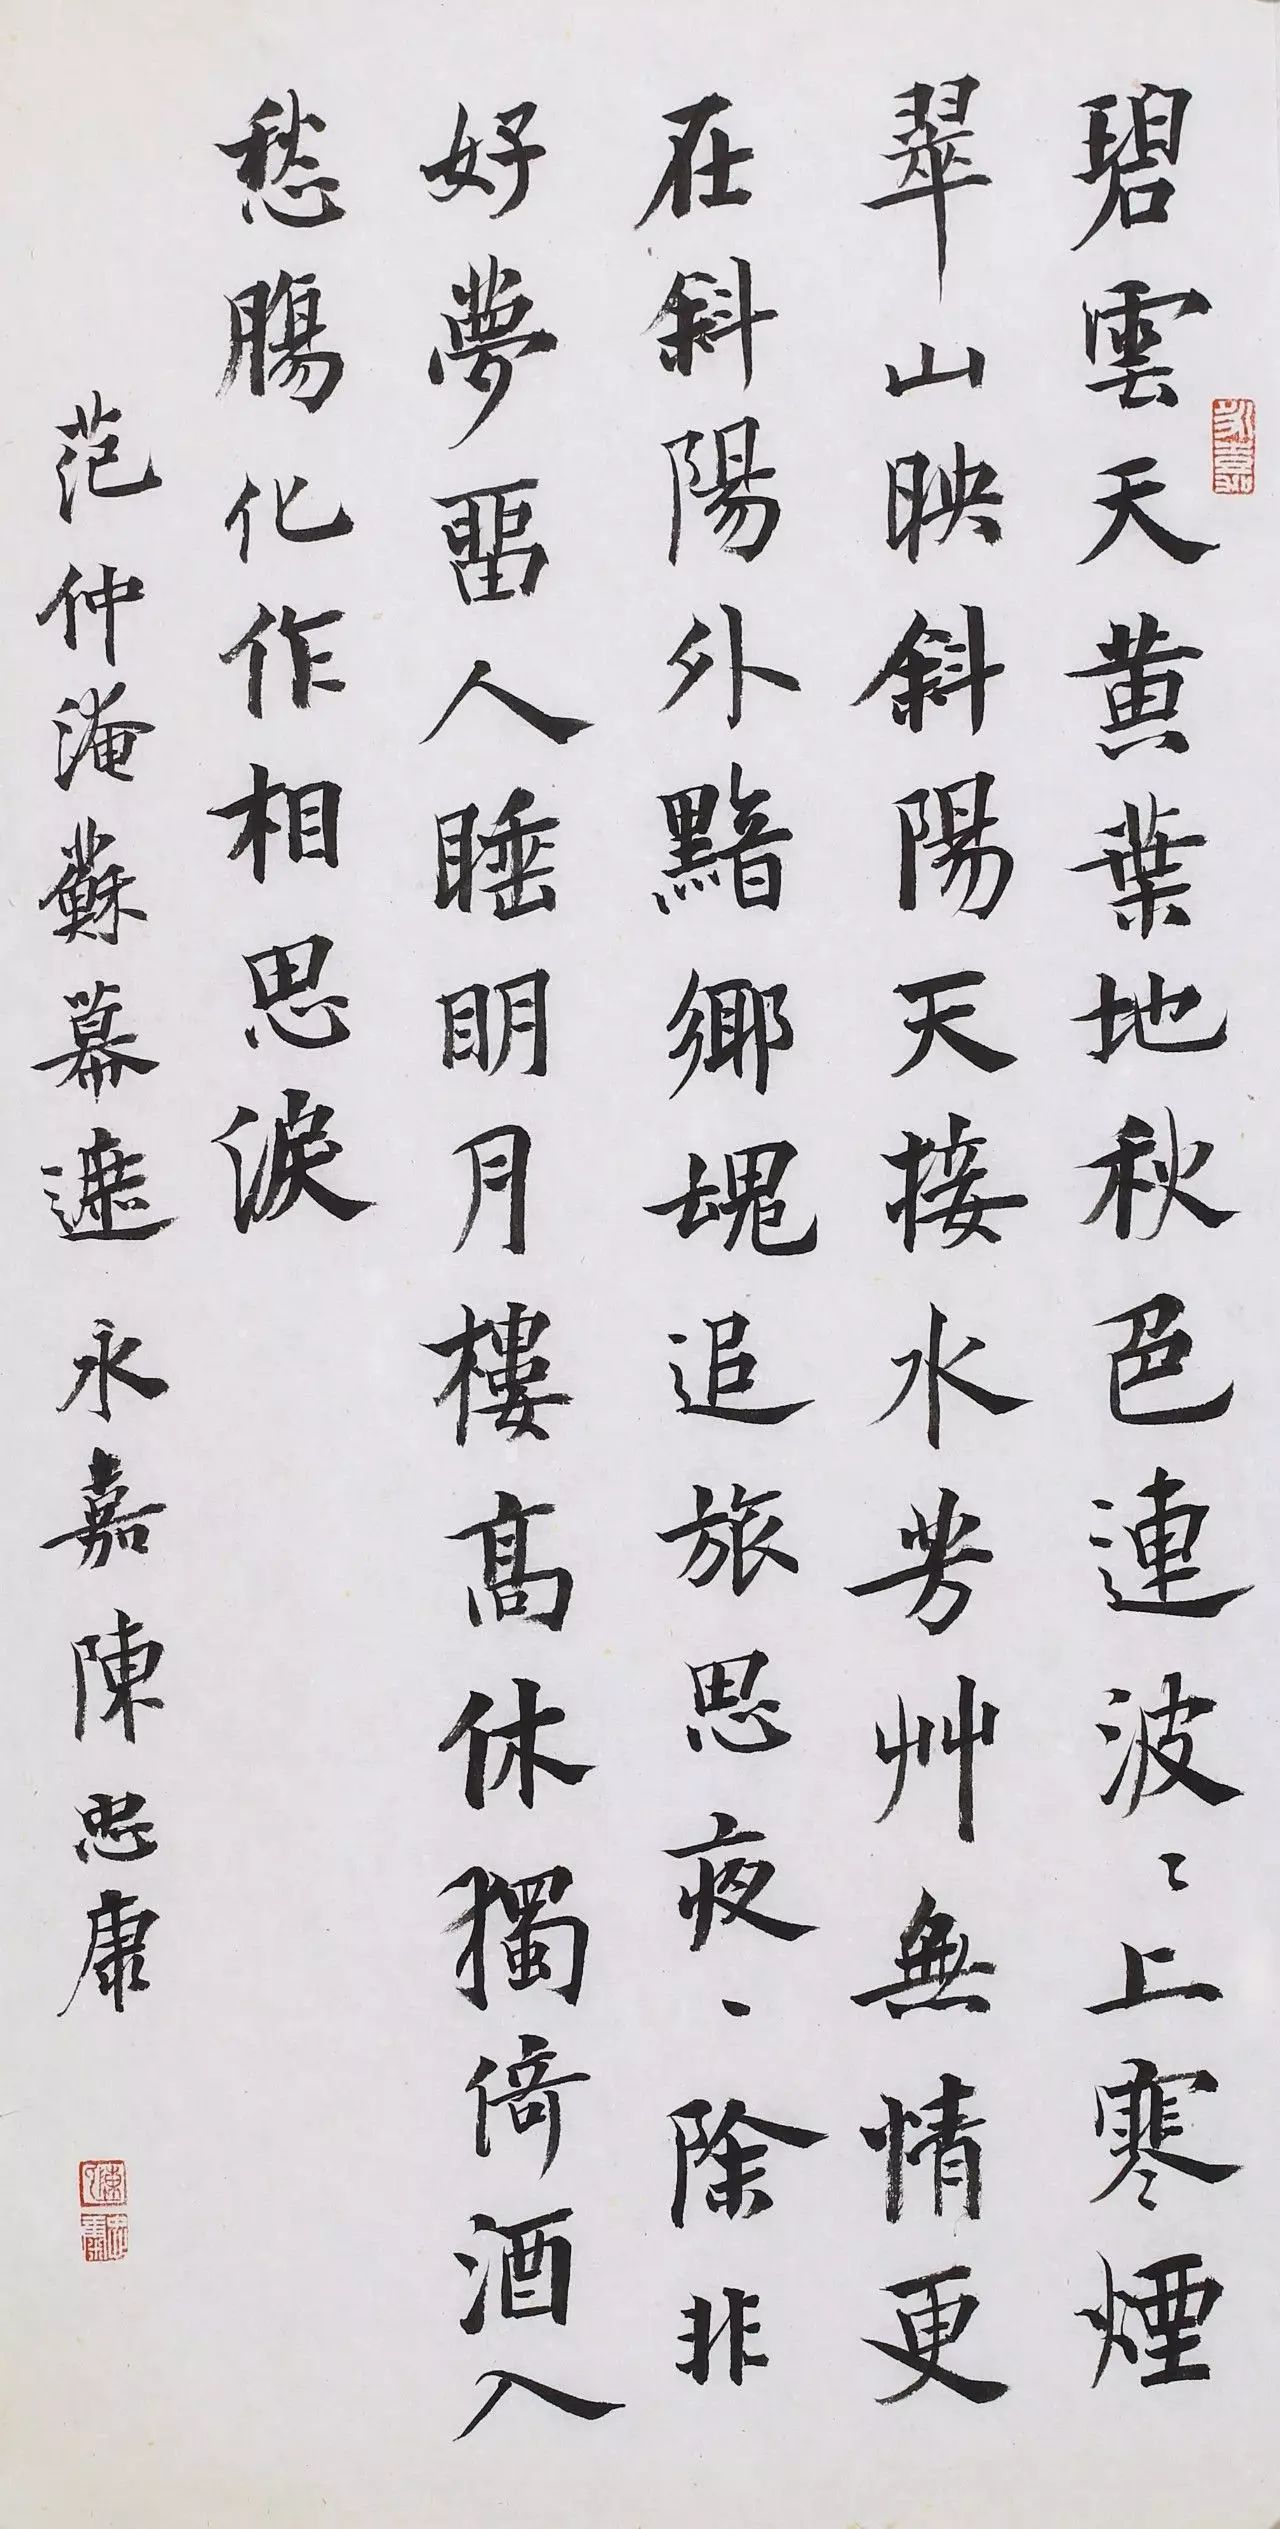 碧雲天黄葉地秋色連波〻上寒煙
翠山映斜陽天接水芳艸無情更
在斜陽外黯鄉魂追旅思夜〻除非
好夢畱人睡明月樓高休獨倚酒入
愁腸化作相思淚
范仲淹蘇幕遮 永嘉陳忠康